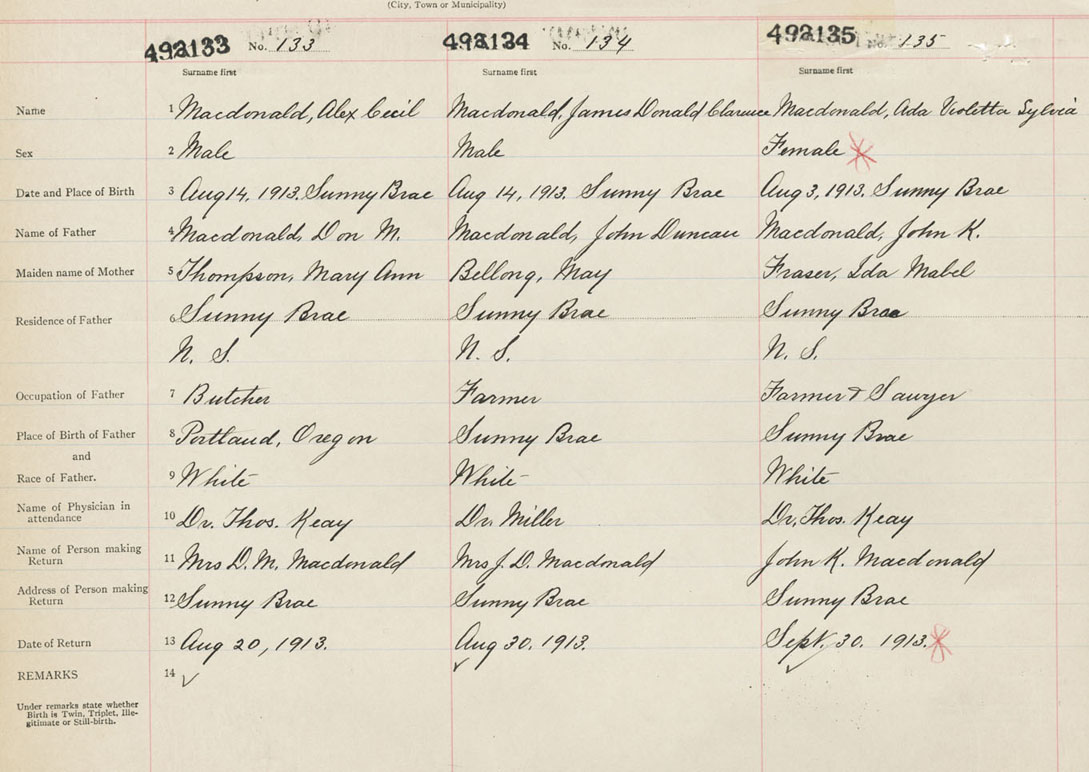 (City, Town or Municipality)
493133 No. 133 493134 No. 134 493135 No. 135
Surname first Surname first Surname first
Name 1 Macdonald, Alex Cecil Macdonald, James Donald Clarence Macdonald, Ada Violetta Sylvia
Sex 2 Male Male Female
Date and Place of Birth 3 Aug 14, 1913. Sunny Brae Aug 14, 1913. Sunny Brae Aug 3, 1913. Sunny Brae
Name of Father 4 Macdonald, Don M. Macdonald, John Duncan Macdonald, John K.
Maiden name of Mother 5 Thompson, Mary Ann Bellong, May Fraser, Ida Mabel
Residence of Father 6 Sunny Brae Sunny Brae Sunny Brae
N. S. N. S. N. S.
Occupation of Father 7 Butcher Farmer Farmer & Sawyer
Place of Birth of Father 8 Portland, Oregon Sunny Brae Sunny Brae
and
Race of Father. 9 White White White
Name of Physician in
attendance 10 Dr. Thos. Keay Dr. Miller Dr. Thos. Keay
Name of Person making
Return 11 Mrs D. M. Macdonald Mrs J. D. Macdonald John K. Macdonald
Address of Person making
Return 12 Sunny Brae Sunny Brae Sunny Brae
Date of Return 13 Aug 20, 1913. Aug 30. 1913. Sept. 30. 1913.
REMARKS 14
Under remarks state whether
Birth is Twin, Triplet, Ille-
gitimate or Still-birth.